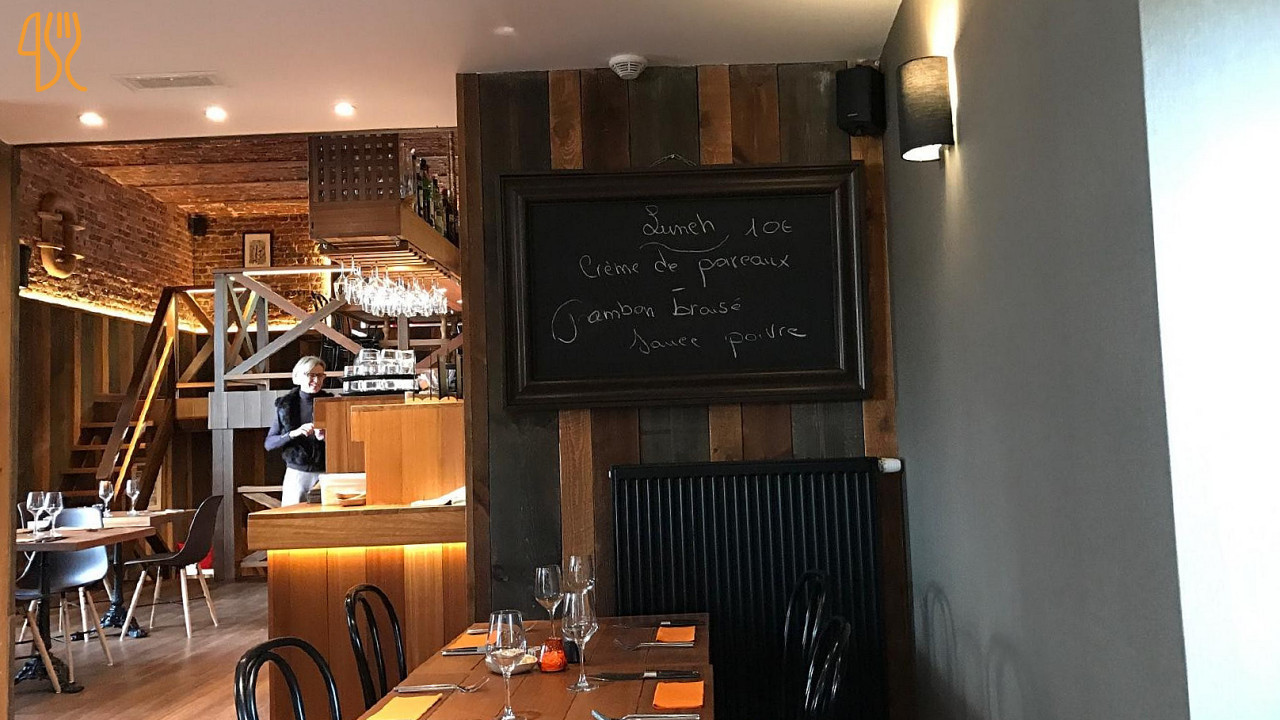 Lunch 10€
Crème de pareaux
-
Jambon braisé
Sauce poivre